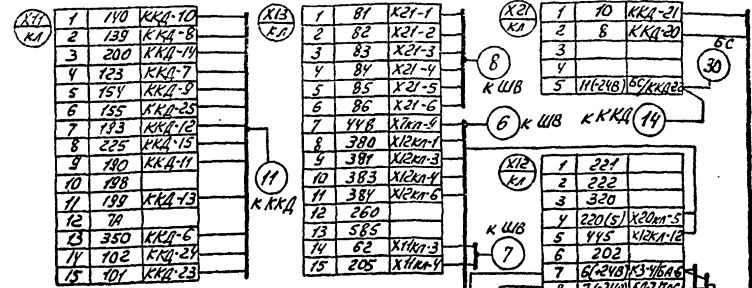 Х11
КЛ
1 140 ККД-10
2 139 ККД-8
3 200 ККД-14
4 123 ККД-7
5 154 ККД-9
6 155 ККД-25
7 193 ККД-12
8 225 ККД-15
9 190 ККД-11
10 198
11 199 ККД-13
12 7А
13 350 ККД-6
14 102 ККД-24
15 101 ККД-23
11
к ККД
Х13
КЛ
1 81 Х21-1
2 82 Х21-2
3 83 Х21-3
4 84 Х21-4
5 85 Х21-5
6 86 Х21-6
7 44В Х7кл-9
8 380 Х12кл-1
9 381 Х12кл-3
10 383 Х12кл-4
11 384 Х12кл-6
12 260
13 585
14 62 Х11кл-3
15 205 Х11кл-4
8
к ШВ
6 к ШВ
к ШВ
7
Х21
КЛ
1 10 ККД-21
2 8 ККД-20
3
4
5 11(-24В) БС/ККД22
БС
30
к ККД 14
Х12
КЛ
1 221
2 222
3 320
4 220(5) Х20кл-5
5 445 Х12кл-12
6 202
7 6(+24В) К3-4/БА-6